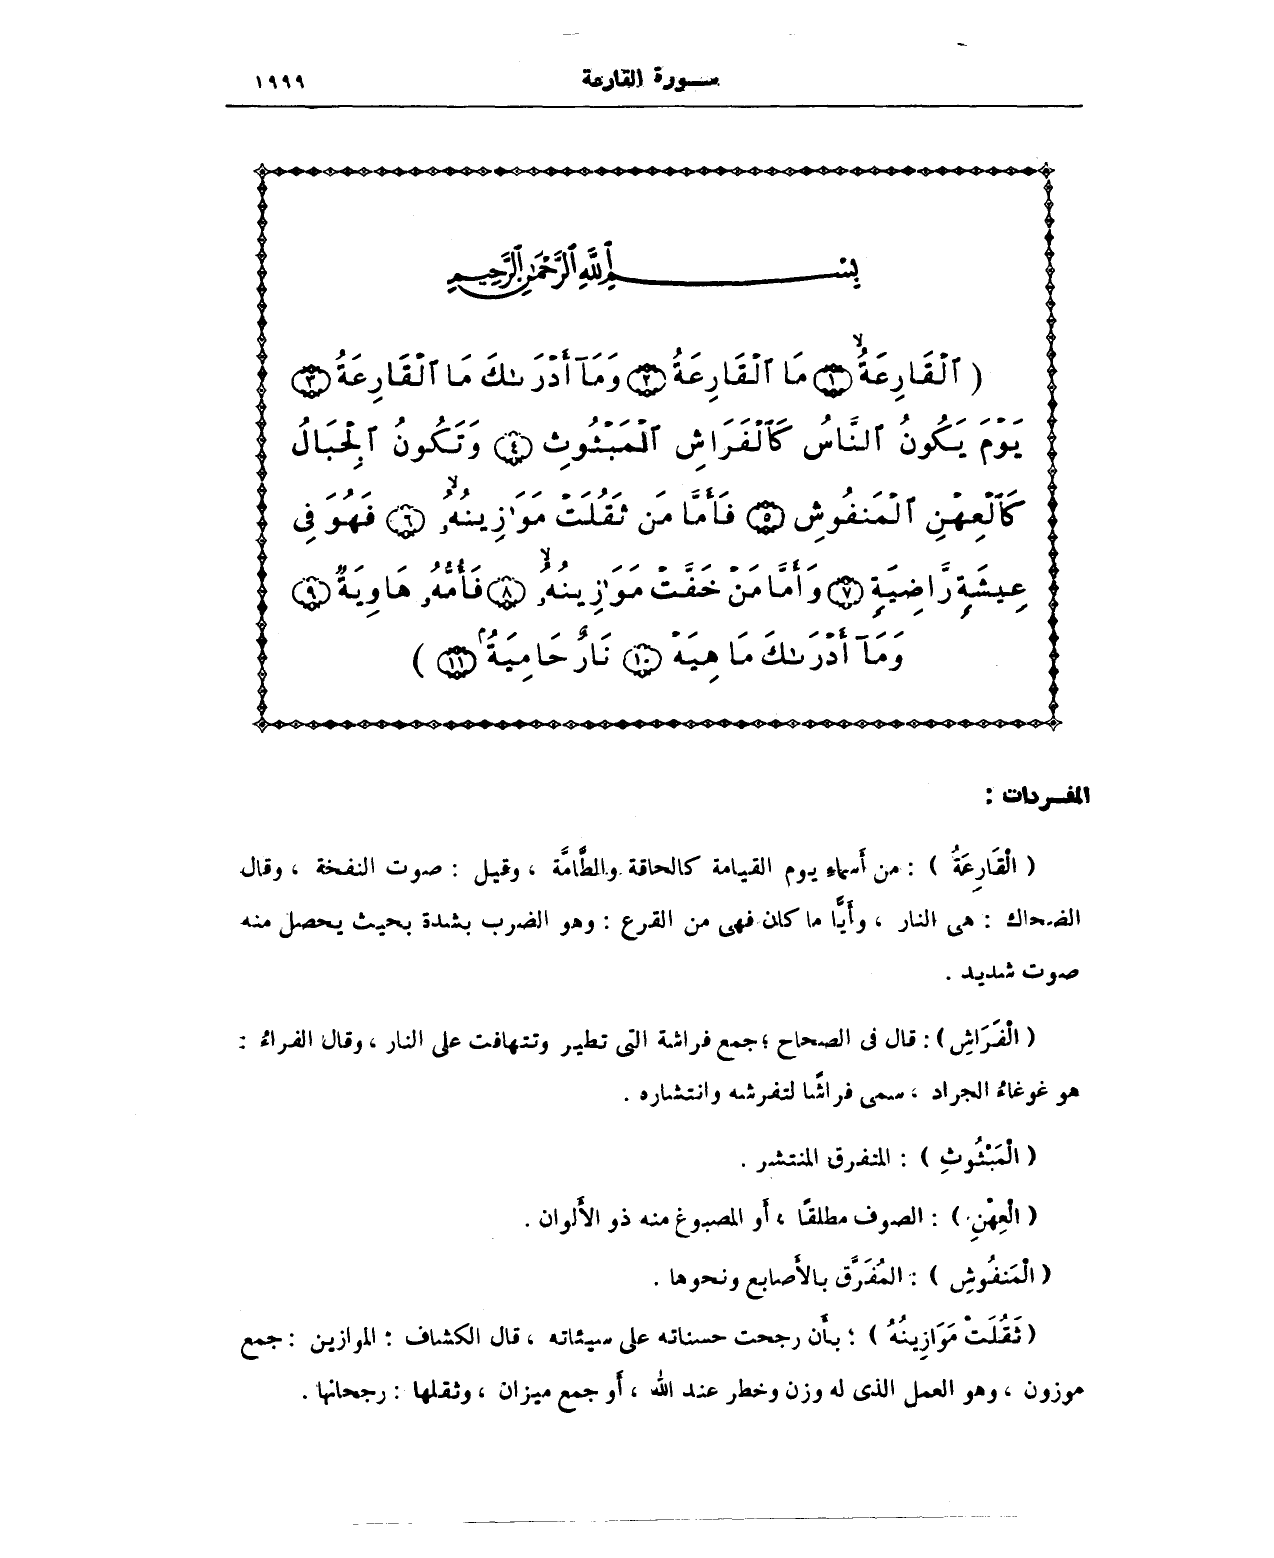 سورة القارعة ١٩٩٩
بِسْمِ ٱللَّهِ ٱلرَّحْمَٰنِ ٱلرَّحِيمِ
( ٱلْقَارِعَةُ ۙ ١ مَا ٱلْقَارِعَةُ ٢ وَمَآ أَدْرَىٰكَ مَا ٱلْقَارِعَةُ ٣
يَوْمَ يَكُونُ ٱلنَّاسُ كَٱلْفَرَاشِ ٱلْمَبْثُوثِ ٤ وَتَكُونُ ٱلْجِبَالُ
كَٱلْعِهْنِ ٱلْمَنفُوشِ ٥ فَأَمَّا مَن ثَقُلَتْ مَوَٰزِينُهُۥ ۙ ٦ فَهُوَ فِى
عِيشَةٍ رَّاضِيَةٍ ٧ وَأَمَّا مَنْ خَفَّتْ مَوَٰزِينُهُۥ ۙ ٨ فَأُمُّهُۥ هَاوِيَةٌ ٩
وَمَآ أَدْرَىٰكَ مَا هِيَهْ ١٠ نَارٌ حَامِيَةٌۢ ١١ )
المفـردات :
( الْقَارِعَةُ ) : من أسماء يوم القيامة كالحاقة والطَّامَّة ، وقيل : صوت النفخة ، وقال
الضحاك : هى النار ، وأيًّا ما كان فهى من القرع : وهو الضرب بشدة بحيث يحصل منه
صوت شديد .
( الْفَرَاشِ ) : قال فى الصحاح ؛ جمع فراشة التى تطير وتتهافت على النار ، وقال الفراءُ :
هو غوغاءُ الجراد ، سمى فراشًا لتفرشه وانتشاره .
( الْمَبْثُوثِ ) : المتفرق المنتشر .
( الْعِهْنِ ) : الصوف مطلقًا ، أو المصبوغ منه ذو الألوان .
( الْمَنفُوشِ ) : المُفَرَّق بالأصابع ونحوها .
( ثَقُلَتْ مَوَازِينُهُ ) ؛ بأن رجحت حسناته على سيئاته ، قال الكشاف : الموازين : جمع
موزون ، وهو العمل الذى له وزن وخطر عند الله ، أو جمع ميزان ، وثقلها : رجحانها .